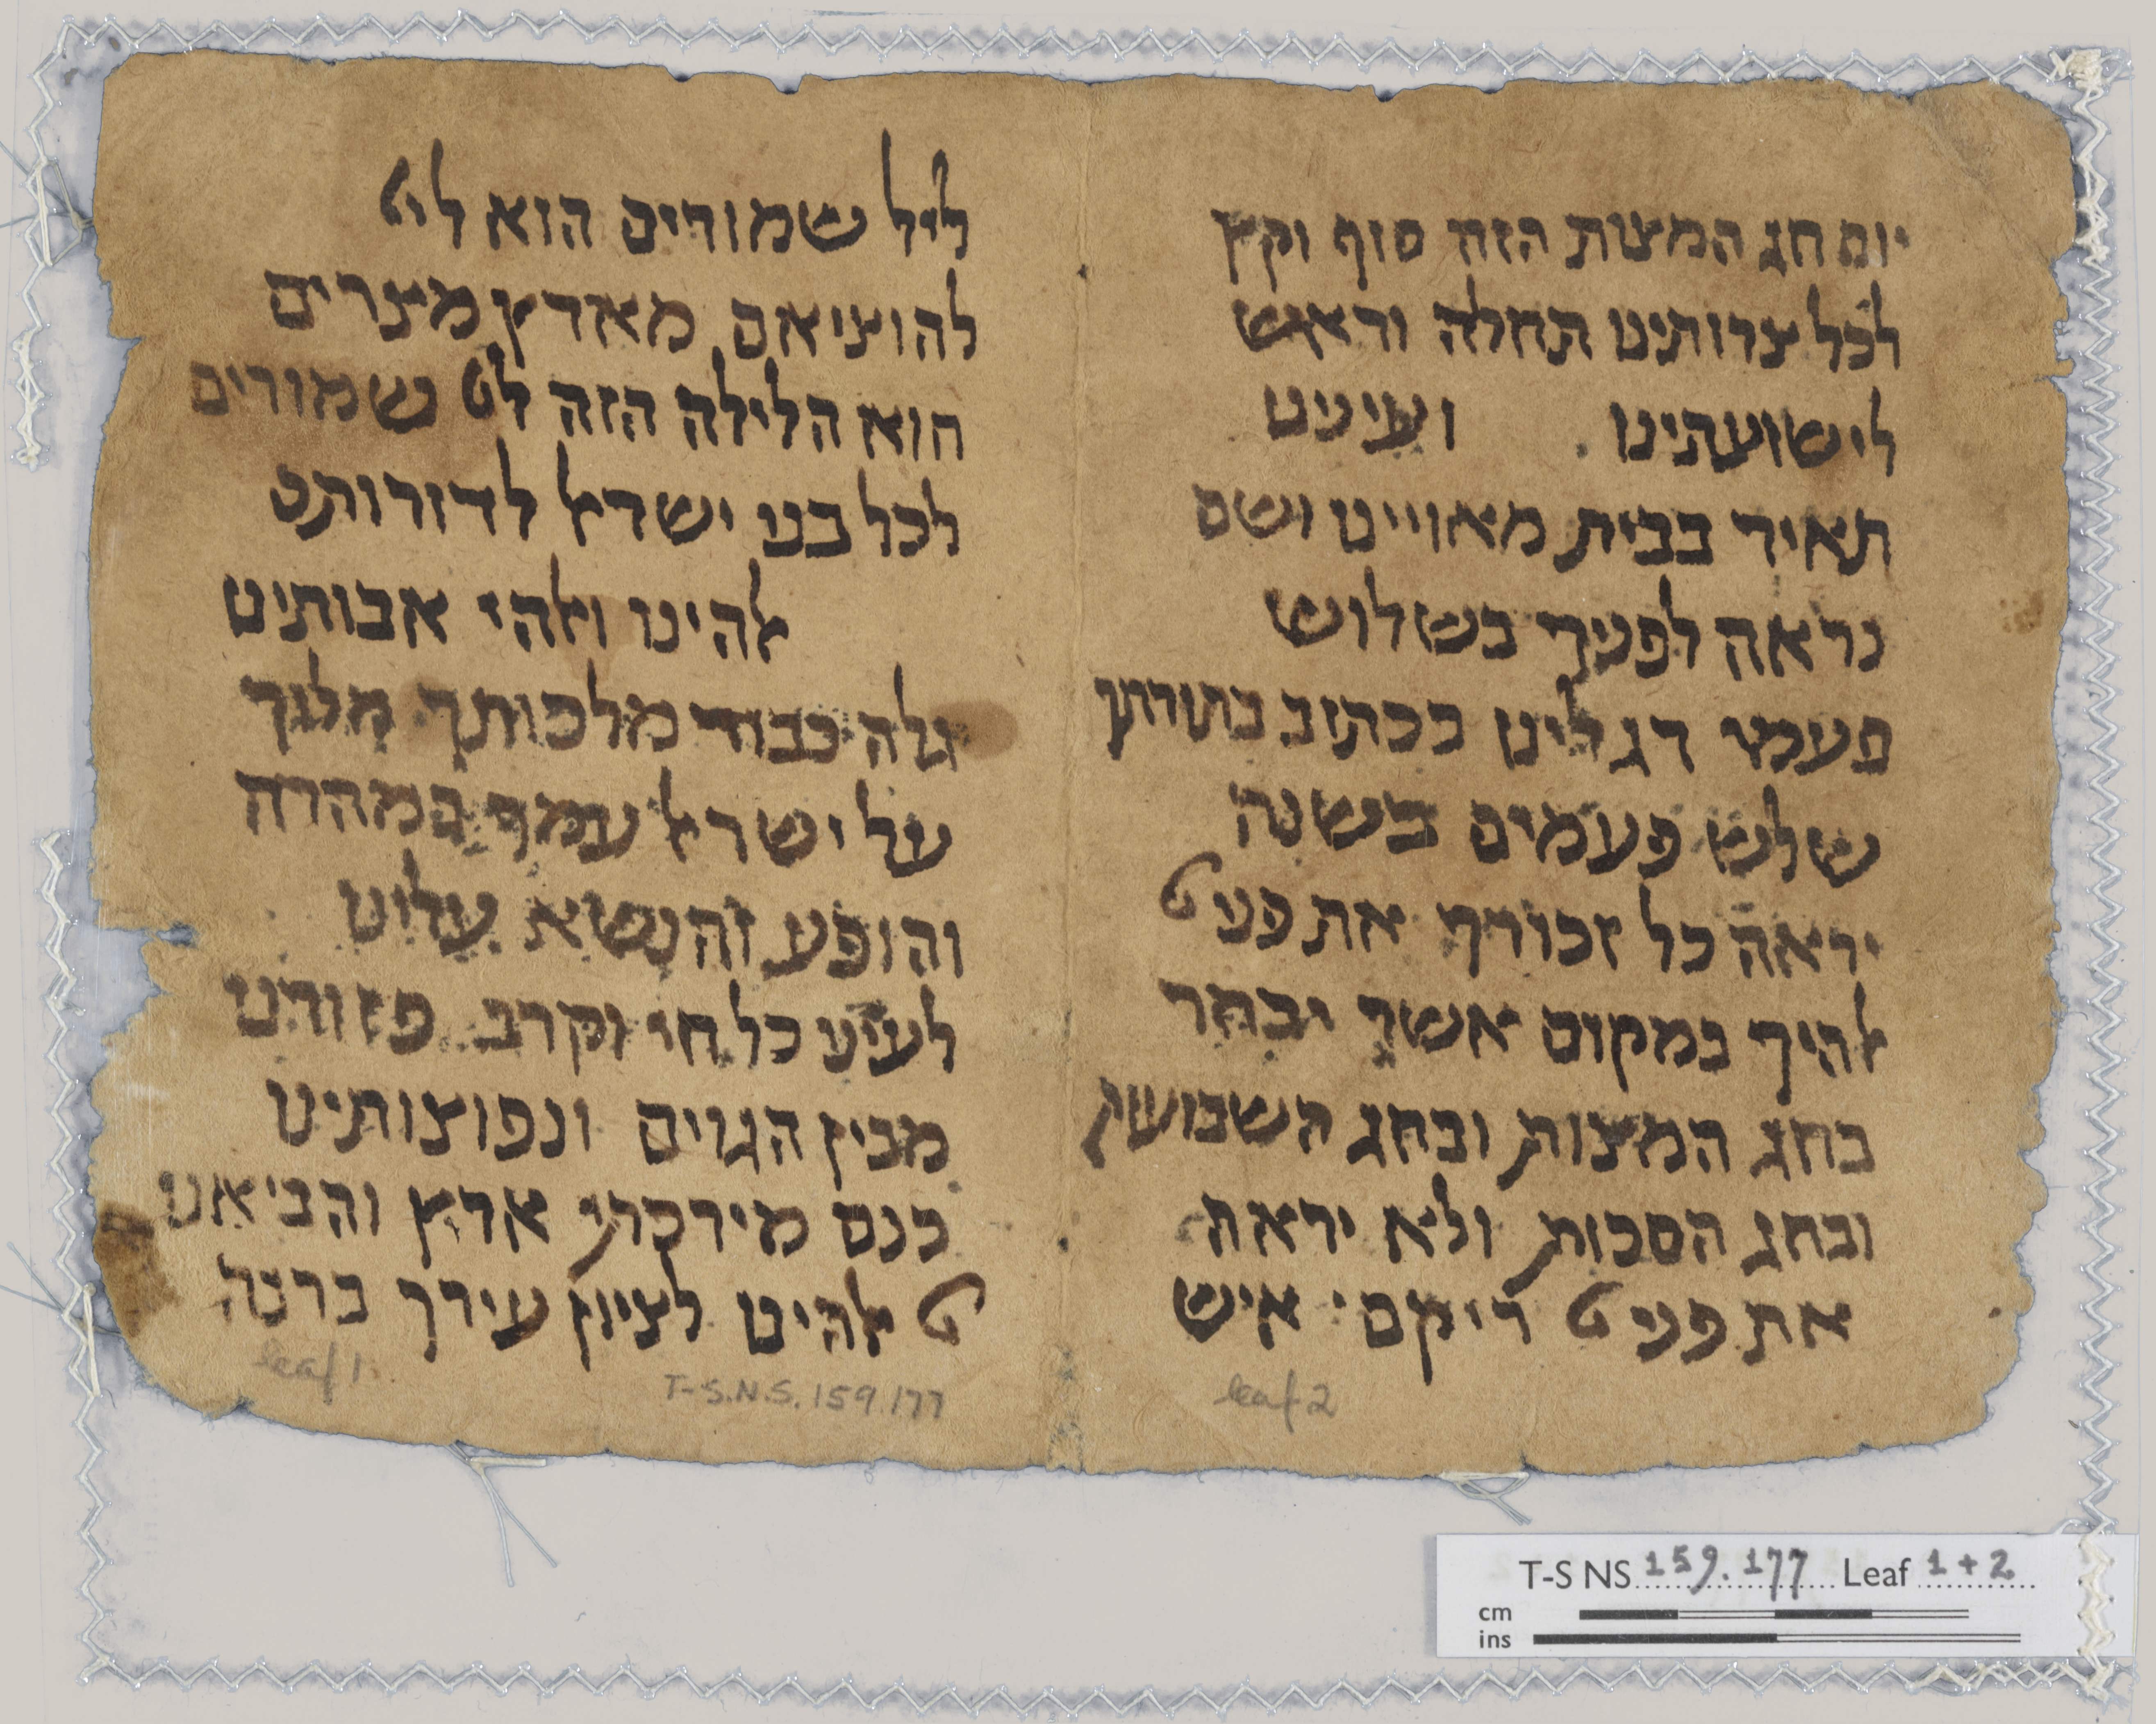 יום חג המצות הזה סוף וקץ
לכל צרותינו תחלה וראש
לישועתינו ועינינו
תאיר בבית מאויינו ושם
נראה לפניך בשלוש
פעמי רגלינו ככתוב בתורתך
שלש פעמים בשנה
יראה כל זכורך את פני יי
אלהיך במקום אשר יבחר
בחג המצות ובחג השבועות
ובחג הסכות ולא יראה
את פני יי ריקם איש
ליל שמורים הוא ליי
להוציאם מארץ מצרים
הוא הלילה הזה ליי שמורים
לכל בני ישראל לדורותם
אלהינו ואלהי אבותינו
גלה כבוד מלכותך מלוך
על ישראל עמך במהרה
והופע והנשא עלינו
לעיני כל חי וקרב פזורנו
מבין הגוים ונפוצותינו
כנס מירכתי ארץ והביאנו
יי אלהינו לציון עירך ברנה
leaf 1
T-S.N.S. 159.177
leaf 2
T-S NS 159.177 Leaf 1 + 2
cm
ins